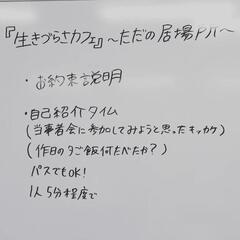 『生きづらさカフェ』〜ただの居場所〜
・お約束説明
・自己紹介タイム
(当事者会に参加してみようと思ったキッカケ)
(作日の夕ご飯何たべたか?)
パスでもOK!
1人5分程度で